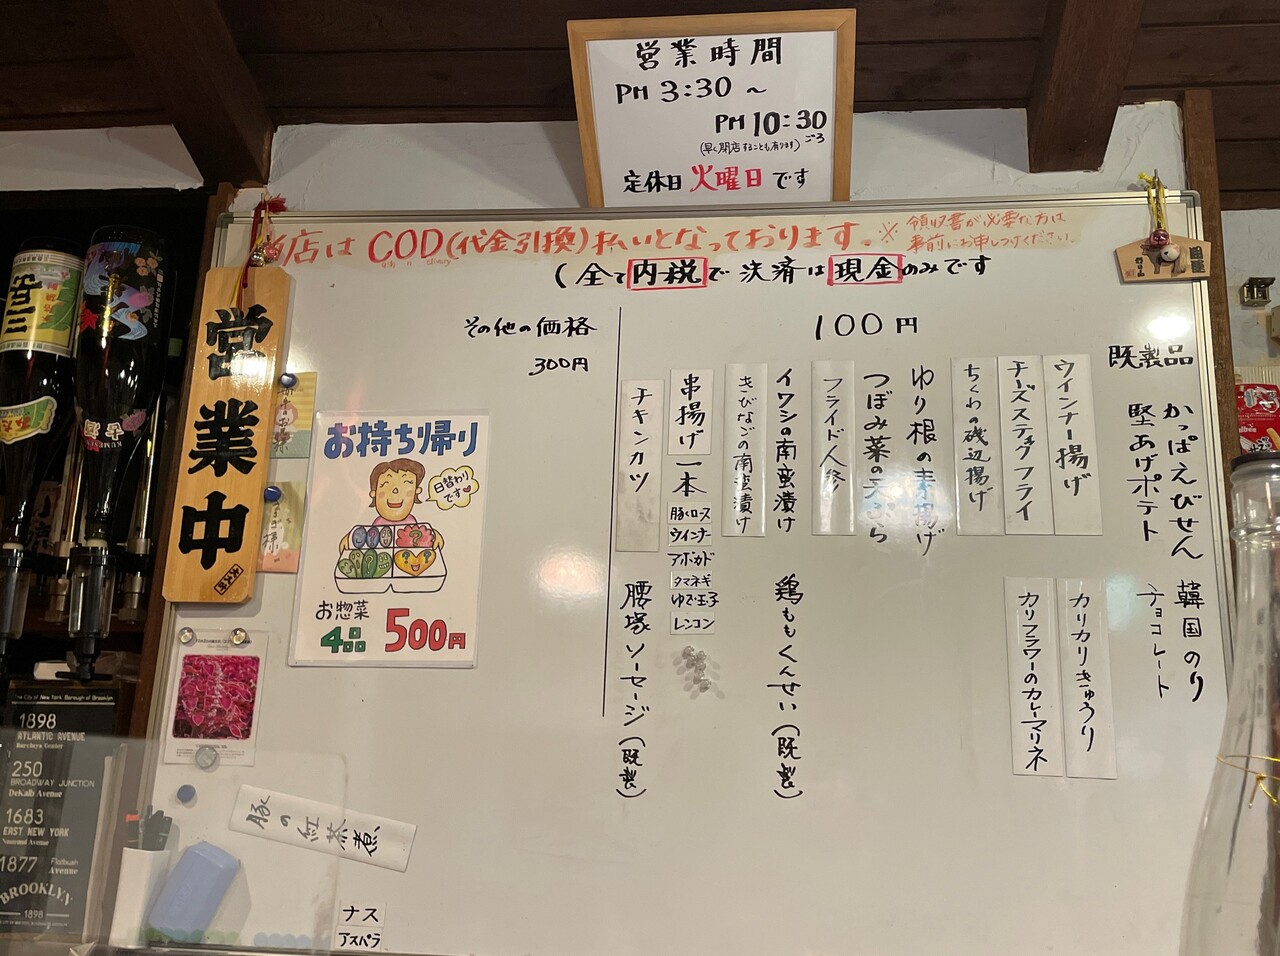 営業時間
PM 3:30 ～
PM 10:30
ごろ
(早く閉店することも有ります)
定休日 火曜日 です
店は COD(代金引換)払いとなっております。
※ 領収書が必要な方は
事前にお申しつけください。
(全て内税で 決済は現金のみです
営業中
100円
既製品
かっぱえびせん
堅あげポテト
韓国のり
チョコレート
ウインナー揚げ
チーズスティックフライ
ちくわの磯辺揚げ
ゆり根の素揚げ
つぼみ菜の天ぷら
フライド人参
イワシの南蛮漬け
きびなごの南蛮漬け
串揚げ 一本
豚ロース
ウインナー
アボカド
タマネギ
ゆで玉子
レンコン
チキンカツ
カリカリきゅうり
カリフラワーのカレーマリネ
鶏ももくんせい(既製)
腰塚ソーセージ(既製)
その他の価格
300円
お持ち帰り
日替わり
です♥
お惣菜
4品 500円
豚の紅茶煮
ナス
アスパラ
The City of New York Borough of Brooklyn
1898
ATLANTIC AVENUE
Barclays Center
250
BROADWAY JUNCTION
DeKalb Avenue
1683
EAST NEW YORK
Nostrand Avenue
1877 Flatbush
Avenue
BROOKLYN
1898